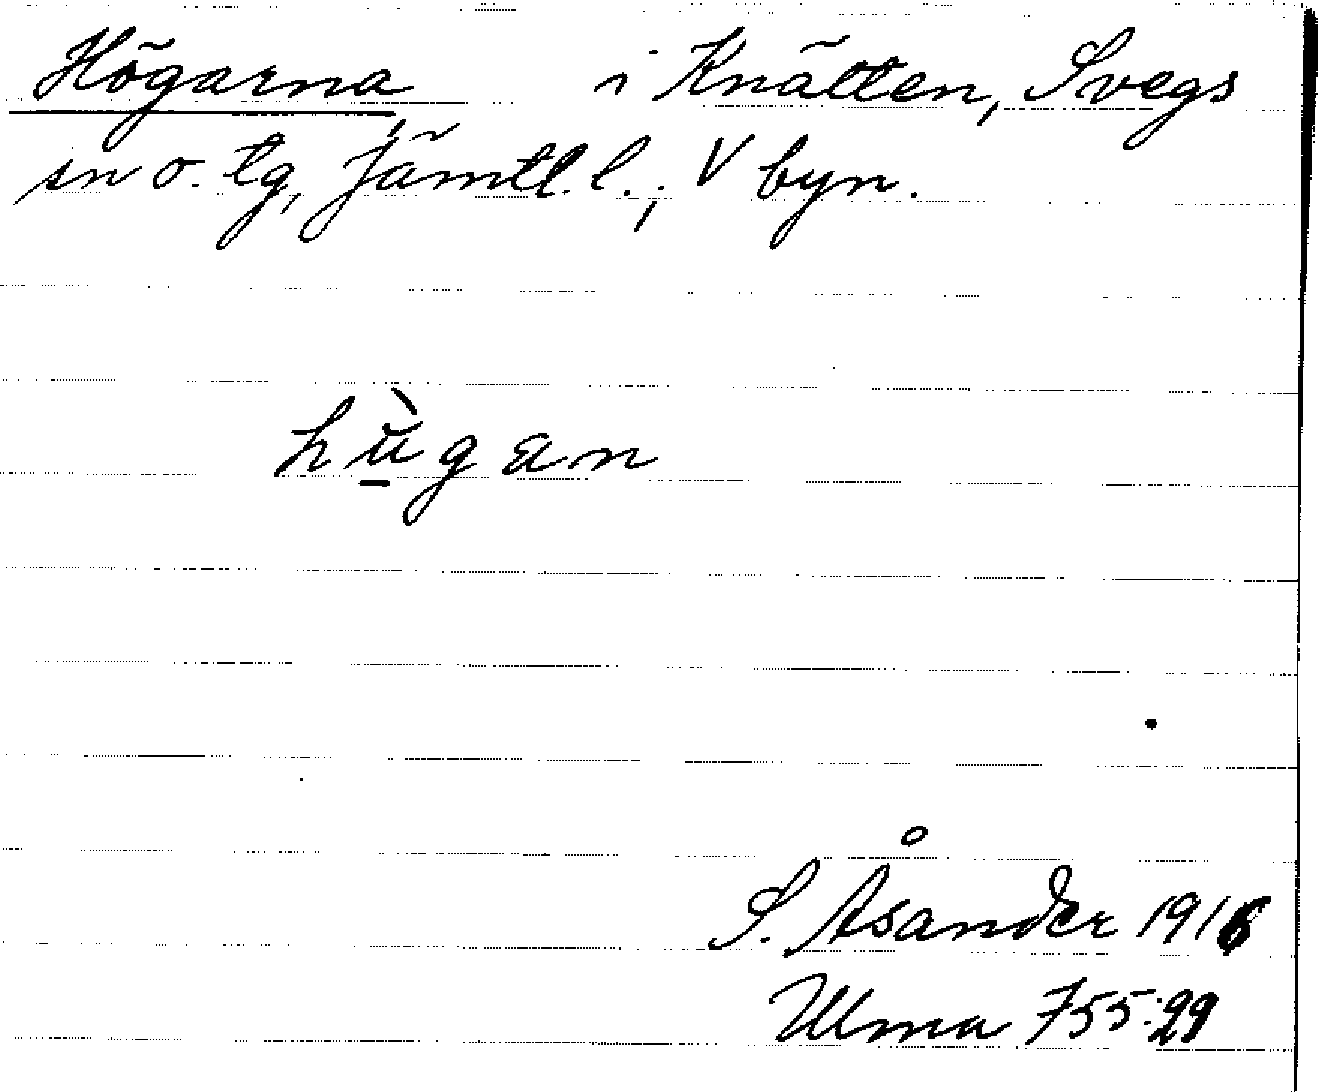 Högarna i Knätten, Svegs
sn o. tg, Jämtl. l.; V byn.
hù̱gan
S. Åsander 1916
Ulma 755:29